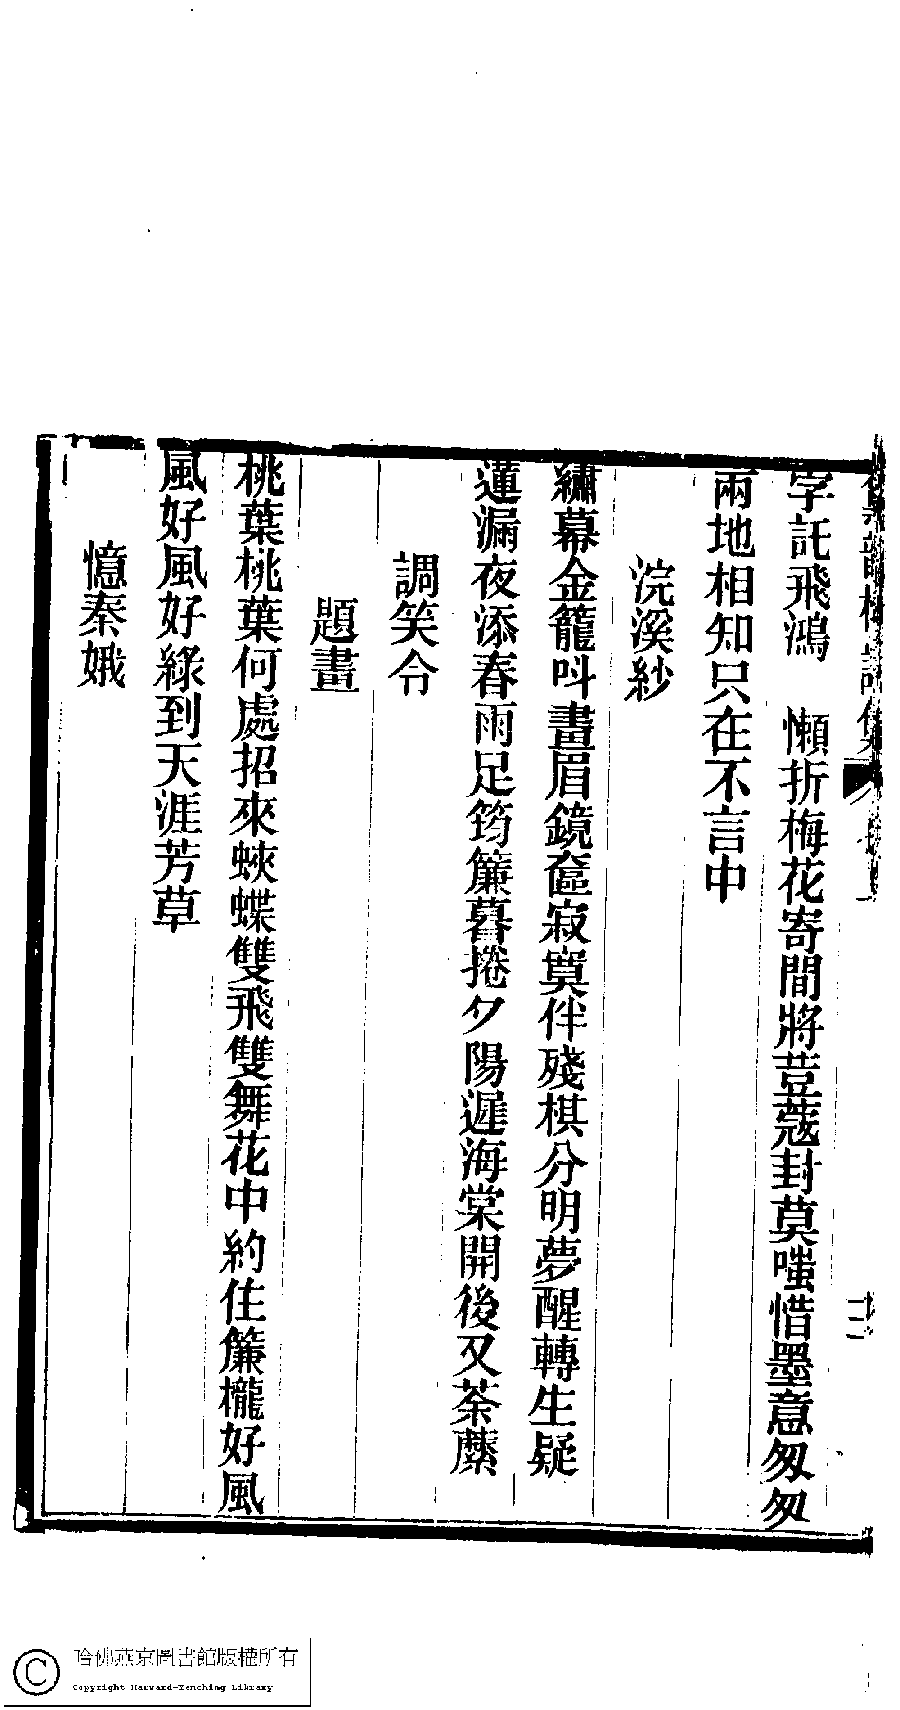 字託飛鴻　懶折梅花寄間將荳蔻封莫嗤惜墨意匆匆
兩地相知只在不言中
浣溪紗
繡幕金籠呌畫眉鏡奩寂寞伴殘棋分明夢醒轉生疑
蓮漏夜添春雨足筠簾暮捲夕陽遲海棠開後又荼蘼
調笑令
題畫
桃葉桃葉何處招來蛺蝶雙飛雙舞花中約住簾櫳好風
風好風好綠到天涯芳草
憶秦娥
哈佛燕京圖書館版權所有
Copyright Harvard-Yenching Library